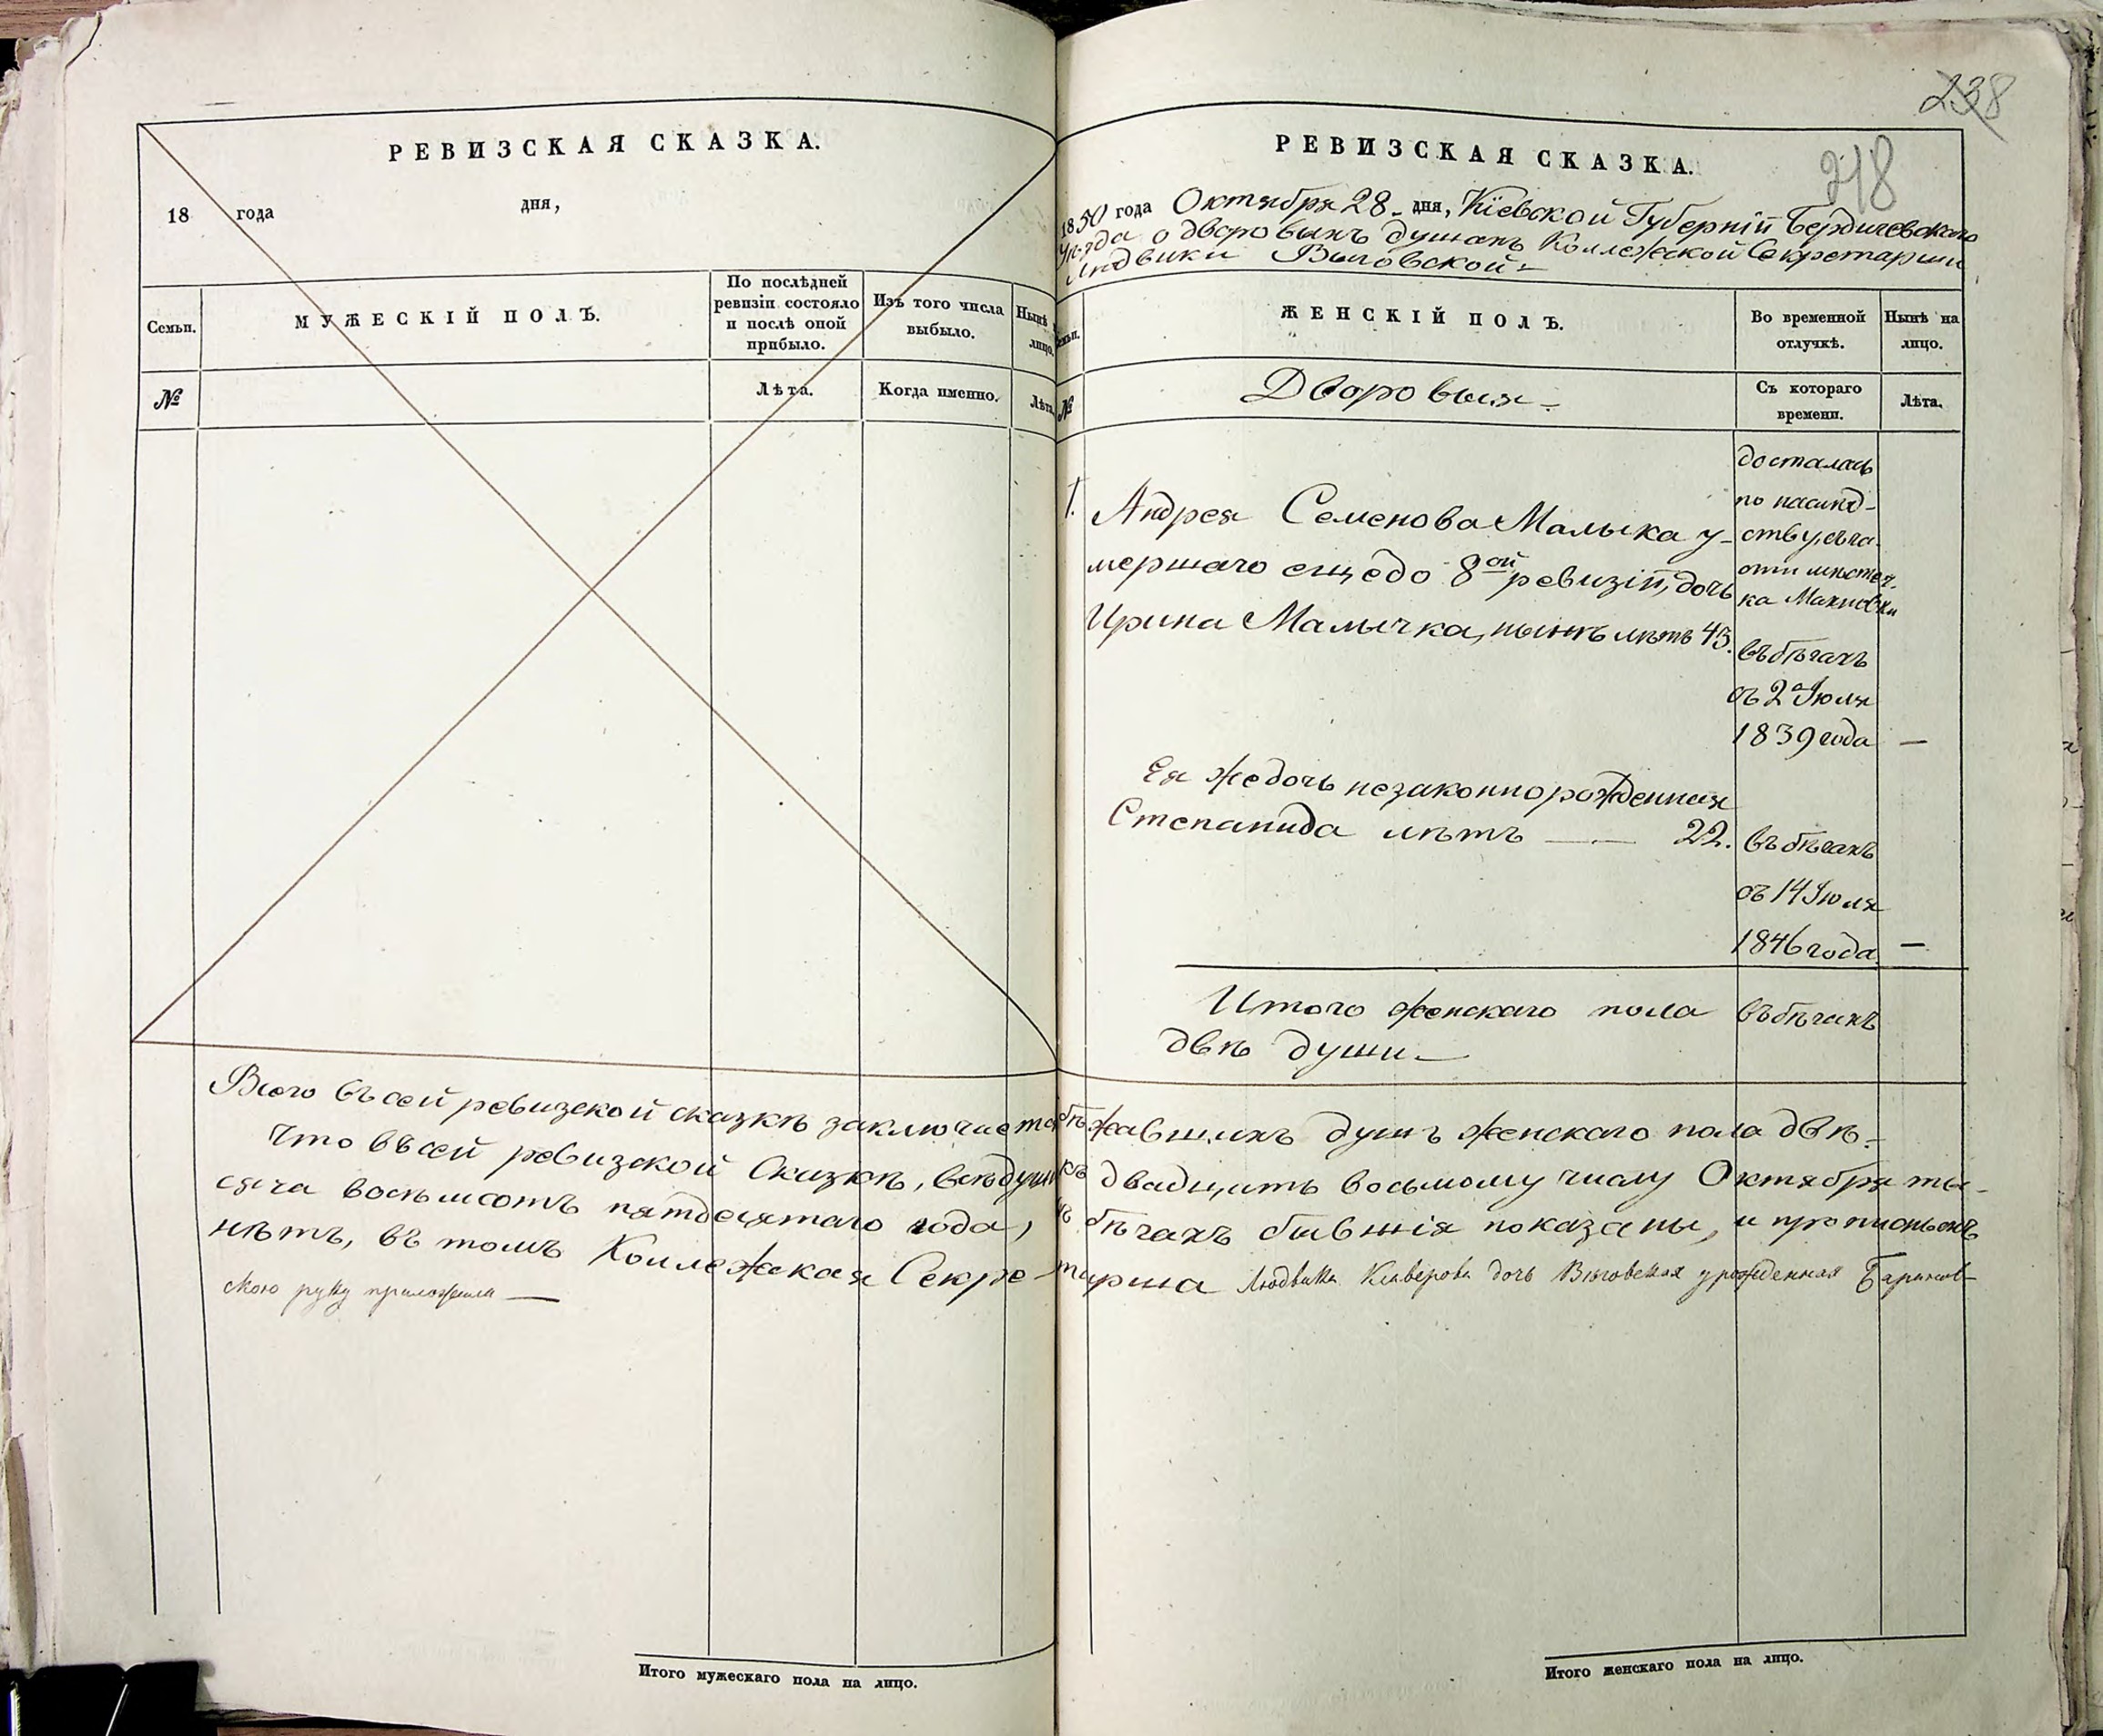 238
218
РЕВИЗСКАЯ СКАЗКА.
18 года дня,
Семьи.
МУЖЕСКІЙ ПОЛЪ.
По послѣдней
ревизіи состояло
и послѣ оной
прибыло.
Изъ того числа
выбыло.
Нынѣ
лицо.
№
Лѣта.
Когда именно.
Лѣта.
РЕВИЗСКАЯ СКАЗКА.
1850 года Октября 28 дня, Кіевской Губерніи Бердичевскаго
Уѣзда о дворовыхъ душахъ Коллежской Секретарши
Людвики Выговской
ЖЕНСКІЙ ПОЛЪ.
Во временной
отлучкѣ.
Нынѣ на
лицо.
№
Дворовыя
Съ котораго
времени.
Лѣта.
досталась
по наслѣд-
ству
отъ мѣстеч-
ка Махновки
1. Андрея Семенова Малыка у-
мершаго еще до 8ой ревизіи, дочь
Ирина Малычка, нынѣ лѣтъ 43.
въ бѣгахъ
съ 2 Іюля
1839 года —
Ея же дочь незаконнорожденная
Степанида лѣтъ — 22.
въ бѣгахъ
съ 14 Іюля
1846 года —
Итого женскаго пола въ бѣгахъ
двѣ души
Всего въ сей ревизской сказкѣ заключается бѣжавшихъ душъ женскаго пола двѣ.
Что въ сей ревизской Сказкѣ, всѣ души къ двадцать восьмому числу Октября ты-
сяча восемьсотъ пятдесятаго года, въ бѣгахъ бывшія показаны, и прописныхъ
нѣтъ, въ томъ Коллежская Секре-тарша Людвика Ксаверова дочь Выговская урожденная
скою руку приложила —
Итого мужескаго пола на лицо.
Итого женскаго пола на лицо.